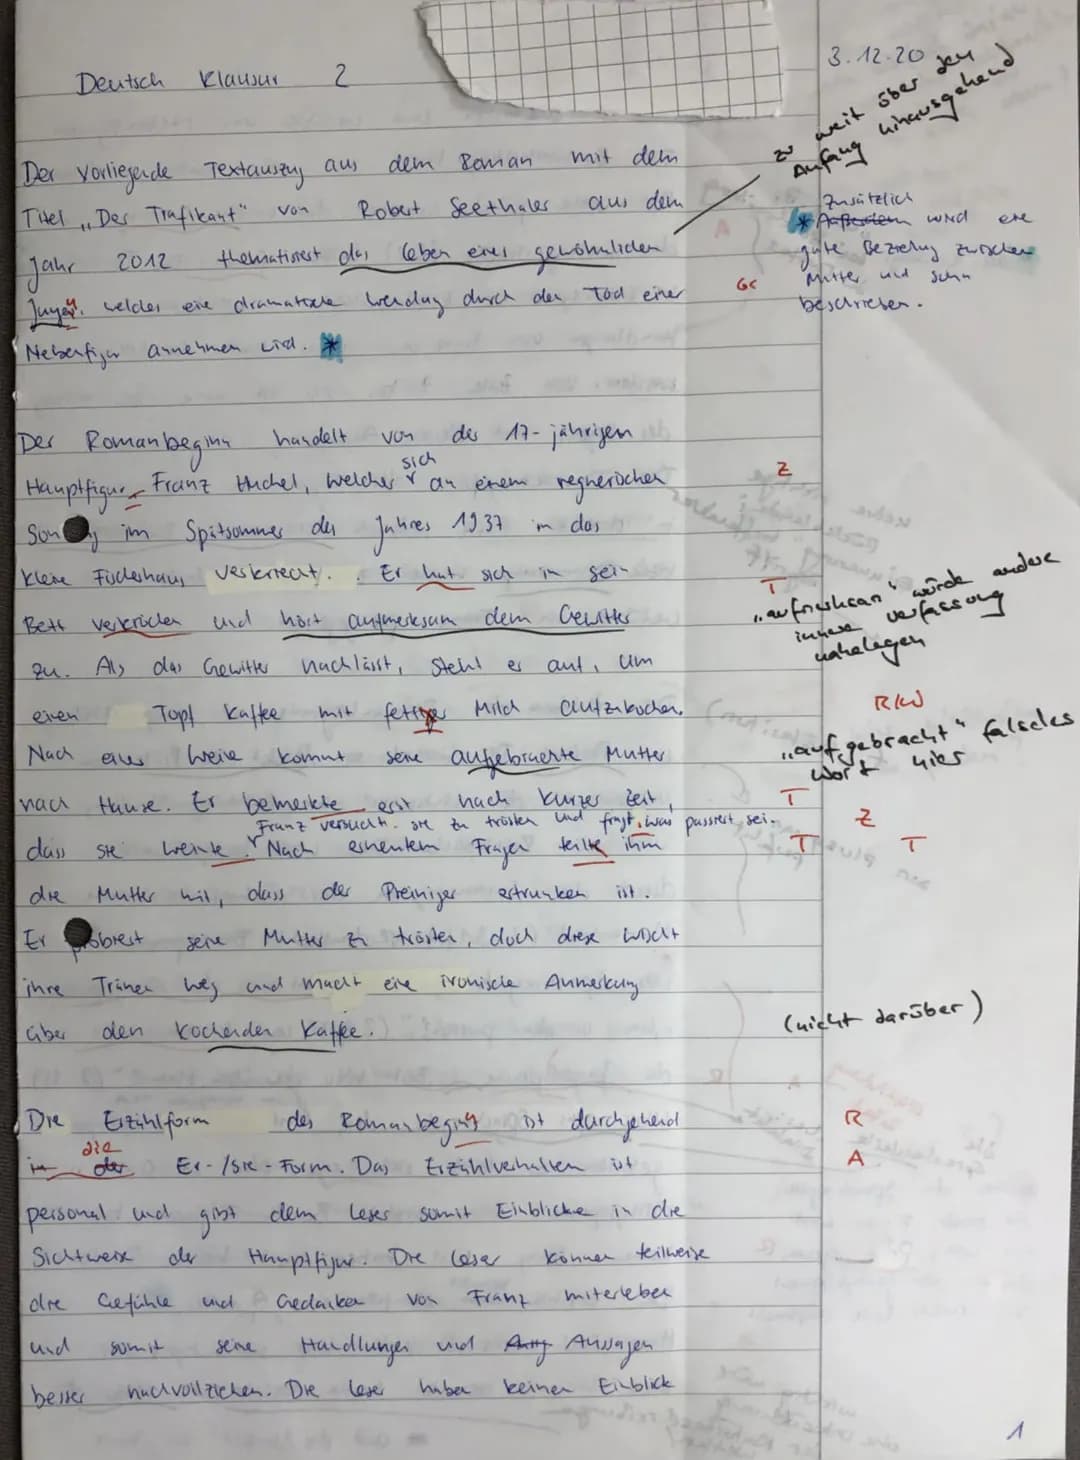 3.12.20
Deutsch Klausur 2
zu weit über den
Anfang hinausgehend
Der vorliegende Textauszug aus dem Roman mit dem
Titel „Der Trafikant" von Robert Seethaler aus dem
Jahr 2012 thematisiert das Leben eines gewöhnlichen
Jungen, welches eine dramatische Wendung durch den Tod einer
Nebenfigur annehmen wird. *
Zusätzlich
* Außerdem wird eine
gute Beziehung zwischen
Mutter und Sohn
beschrieben.
A
Gr
Der Romanbeginn handelt von der 17-jährigen
sich
Hauptfigur Franz Huchel, welcher an einem regnerischen
Z
Sonntag im Spätsommer des Jahres 1937 in das
kleine Fischerhaus verkriecht. Er hat sich in sein
T
Bett verkrochen und hört aufmerksam dem Gewitter
„aufmerksam" würde andere
innere Verfassung
nahelegen
zu. Als das Gewitter nachlässt, steht er auf, um
einen Topf Kaffee mit fettiger Milch aufzukochen.
R/W
Nach einer Weile kommt seine aufgebrachte Mutter
„aufgebracht" falsches
Wort hier
nach Hause. Er bemerkte erst nach kurzer Zeit,
T
Franz versucht sie zu trösten und fragt, was passiert sei.
Z
dass sie weinte. Nach erneutem Fragen teilte ihm
T T
die Mutter mit, dass der Preininger ertrunken ist.
Er probiert seine Mutter zu trösten, doch diese wischt
ihre Tränen weg und macht eine ironische Anmerkung
über den kochenden Kaffee.
(nicht darüber)
Die Erzählform des Romanbeginns ist durchgehend
R
die
in der Er-/Sie-Form. Das Erzählverhalten ist
A
personal und gibt dem Leser somit Einblicke in die
Sichtweise der Hauptfigur. Die Leser können teilweise
die Gefühle und Gedanken von Franz miterleben
und somit seine Handlungen und Aussagen
besser nachvollziehen. Die Leser haben keinen Einblick
1